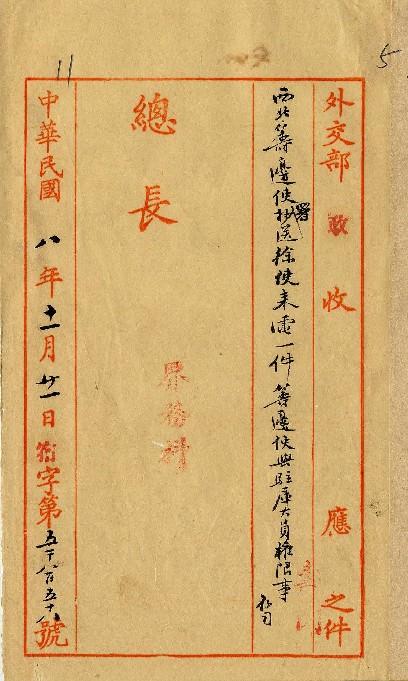 5
11
外交部 政 收 應 之件
西北籌邊使署抄送徐使來電一件籌邊使與駐庫大員權限事
總長
界務
中華民國八年十一月廿一日 字第五千八百五十 號